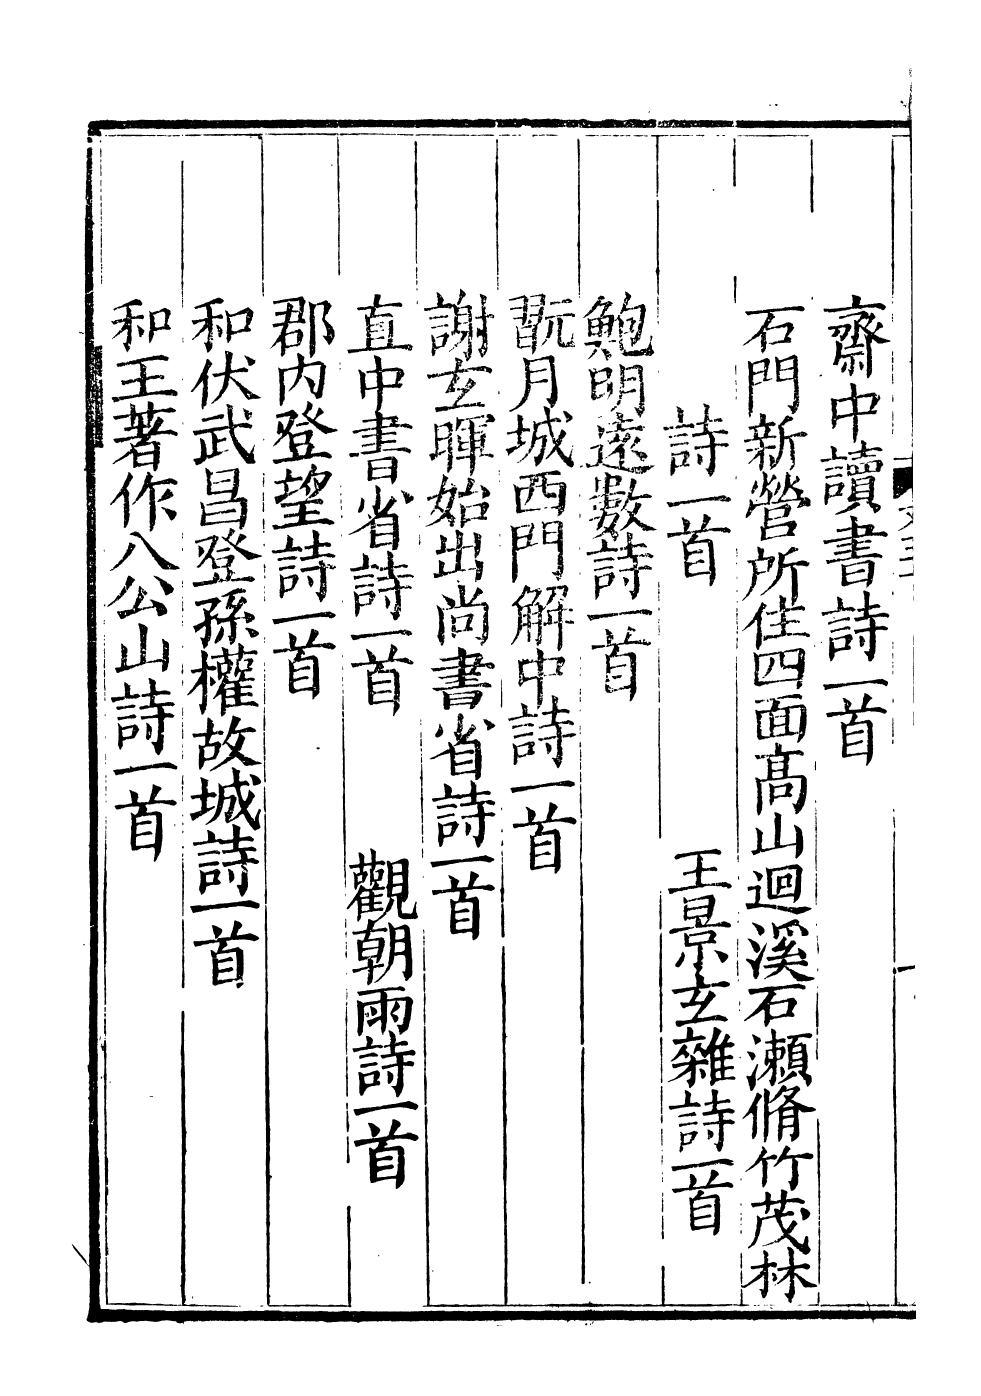 齋中讀書詩一首
石門新營所住四面高山迴溪石瀬脩竹茂林
詩一首　王景玄雜詩一首
鮑明遠數詩一首
翫月城西門解中詩一首
謝玄暉始出尚書省詩一首
直中書省詩一首　觀朝雨詩一首
郡内登望詩一首
和伏武昌登孫權故城詩一首
和王著作八公山詩一首